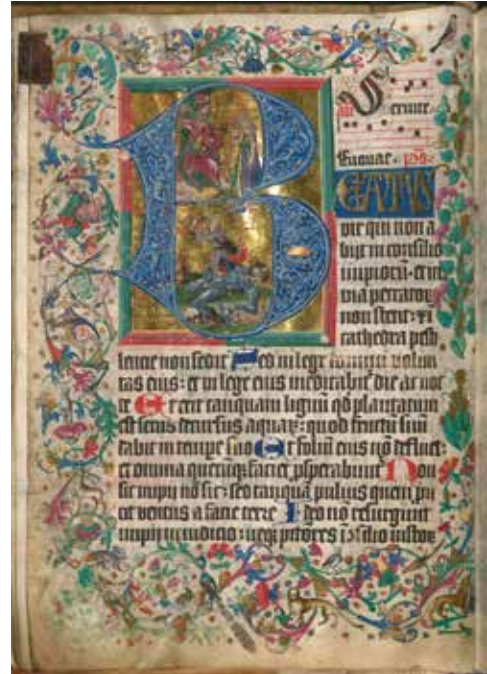 Seruite
Euouae
B
EATVS
vir qui non a
bijt in consilio
impiorū: et in
via peccatorꝫ
non stetit: et
cathedra pesti
lencie non sedit Sed in lege domini volun
tas eius: et in lege eius meditabit᷑ die ac noc
te Et erit tanquam lignū qd̄ plantatum
est secus decursus aquaꝝ: quod fructū suū
dabit in tempꝛe suo Et foliū eius nō defluet:
et omnia faciet Non
sic impij nō sic: sed tanquā puluis quem
cit ventus a facie terre Ideo nō resurgunt
impij in iudicio: neqꝫ iustoꝝ